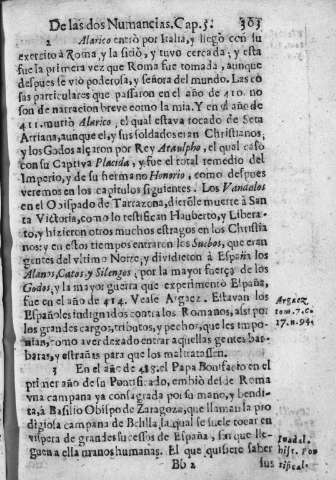 De las dos Numancias. Cap. 5. 303
2 Alarico entrò por Italia, y llegò con su
exercito à Roma, y la sitiò, y tuvo cercada; y esta
fue la primera vez que Roma fue tomada, aunque
despues se viò poderosa, y señora del mundo. Las co
sas particulares que passaron en el año de 410. no
son de narracion breve como la mia. Y en el año de
411. muriò Alarico, el qual estava tocado de Seta
Arriana, aunque el, y sus soldados eran Christianos;
y los Godos alçaron por Rey Ataulpho, el qual casò
con su Captiva Placida, y fue el total remedio del
Imperio, y de su hermano Honorio, como despues
veremos en los capitulos siguientes. Los Vandalos
en el Obispado de Tarrazona, dieronle muerte à San
ta Victoria, como lo testifican Hauberto, y Libera-
to, y hizieron otros muchos estragos en los Christia
nos: y en estos tiempos entraron los Suebos, que eran
gentes del vltimo Norte, y dividieron à España los
Alanos, Catos, y Silengos; por la mayor fuerça de los
Godos; y la mayor guerra que experimentò España,
fue en el año de 414. Veale Argaez. Estavan los
Españoles indignados contra los Romanos, assi por
los grandes cargos, tributos, y pechos, que les impo-
nian, como aver dexado entrar aquellas gentes bar-
baras, y estrañas para que los maltratassen.
Argaez
tom. 7. c.
17. n. 94.
3 En el año de 485. el Papa Bonifacio en el
primer año de su Pontificado, embiò desde Roma
vna campana ya consagrada por su mano, y bendi-
ta, à Basilio Obispo de Zaragoza, que llaman la pro
digiosa campana de Belilla, la qual se suele tocar en
vispera de grandes sucessos de España, sin que lle-
guen a ella manos humanas. El que quisiere saber
hist. Pon
tifical.
Bb 2 sus